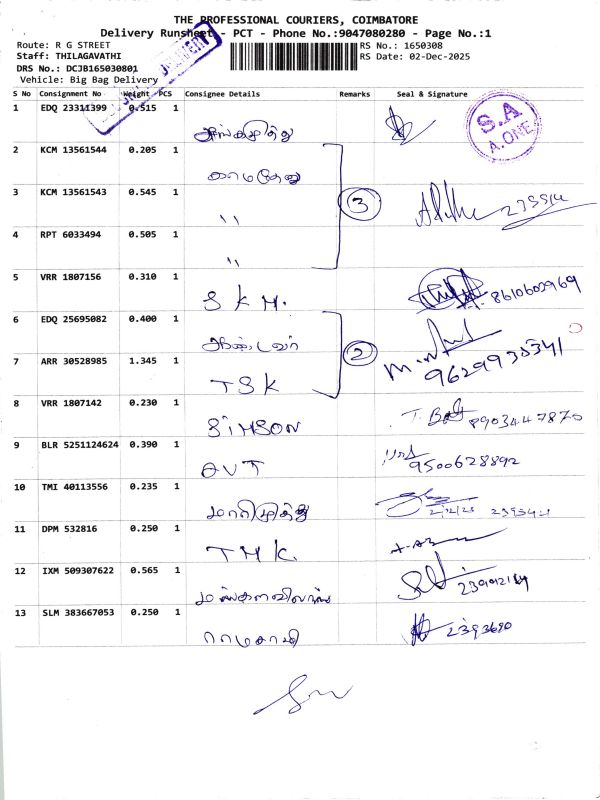 THE PROFESSIONAL COURIERS, COIMBATORE
Delivery Runsheet - PCT - Phone No.:9047080280 - Page No.:1
Route: R G STREET
RS No.: 1650308
Staff: THILAGAVATHI
RS Date: 02-Dec-2025
DRS No.: DCJB165030801
Vehicle: Big Bag Delivery
S No Consignment No Weight PCS Consignee Details Remarks Seal & Signature
1 EDQ 23311399 0.515 1 அங்கமுத்து
S.A
A.ONE
2 KCM 13561544 0.205 1 காமதேனு
3 KCM 13561543 0.545 1 " 3
4 RPT 6033494 0.505 1 "
5 VRR 1807156 0.310 1 S K M. 8610602969
6 EDQ 25695082 0.400 1
7 ARR 30528985 1.345 1 TSK 2 9629935341
8 VRR 1807142 0.230 1 SIMSON 8903447870
9 BLR 5251124624 0.390 1 AVT 9500628892
10 TMI 40113556 0.235 1 மாரிமுத்து 2/12/25
11 DPM 532816 0.250 1 T M K.
12 IXM 509307622 0.565 1
13 SLM 383667053 0.250 1 2393680